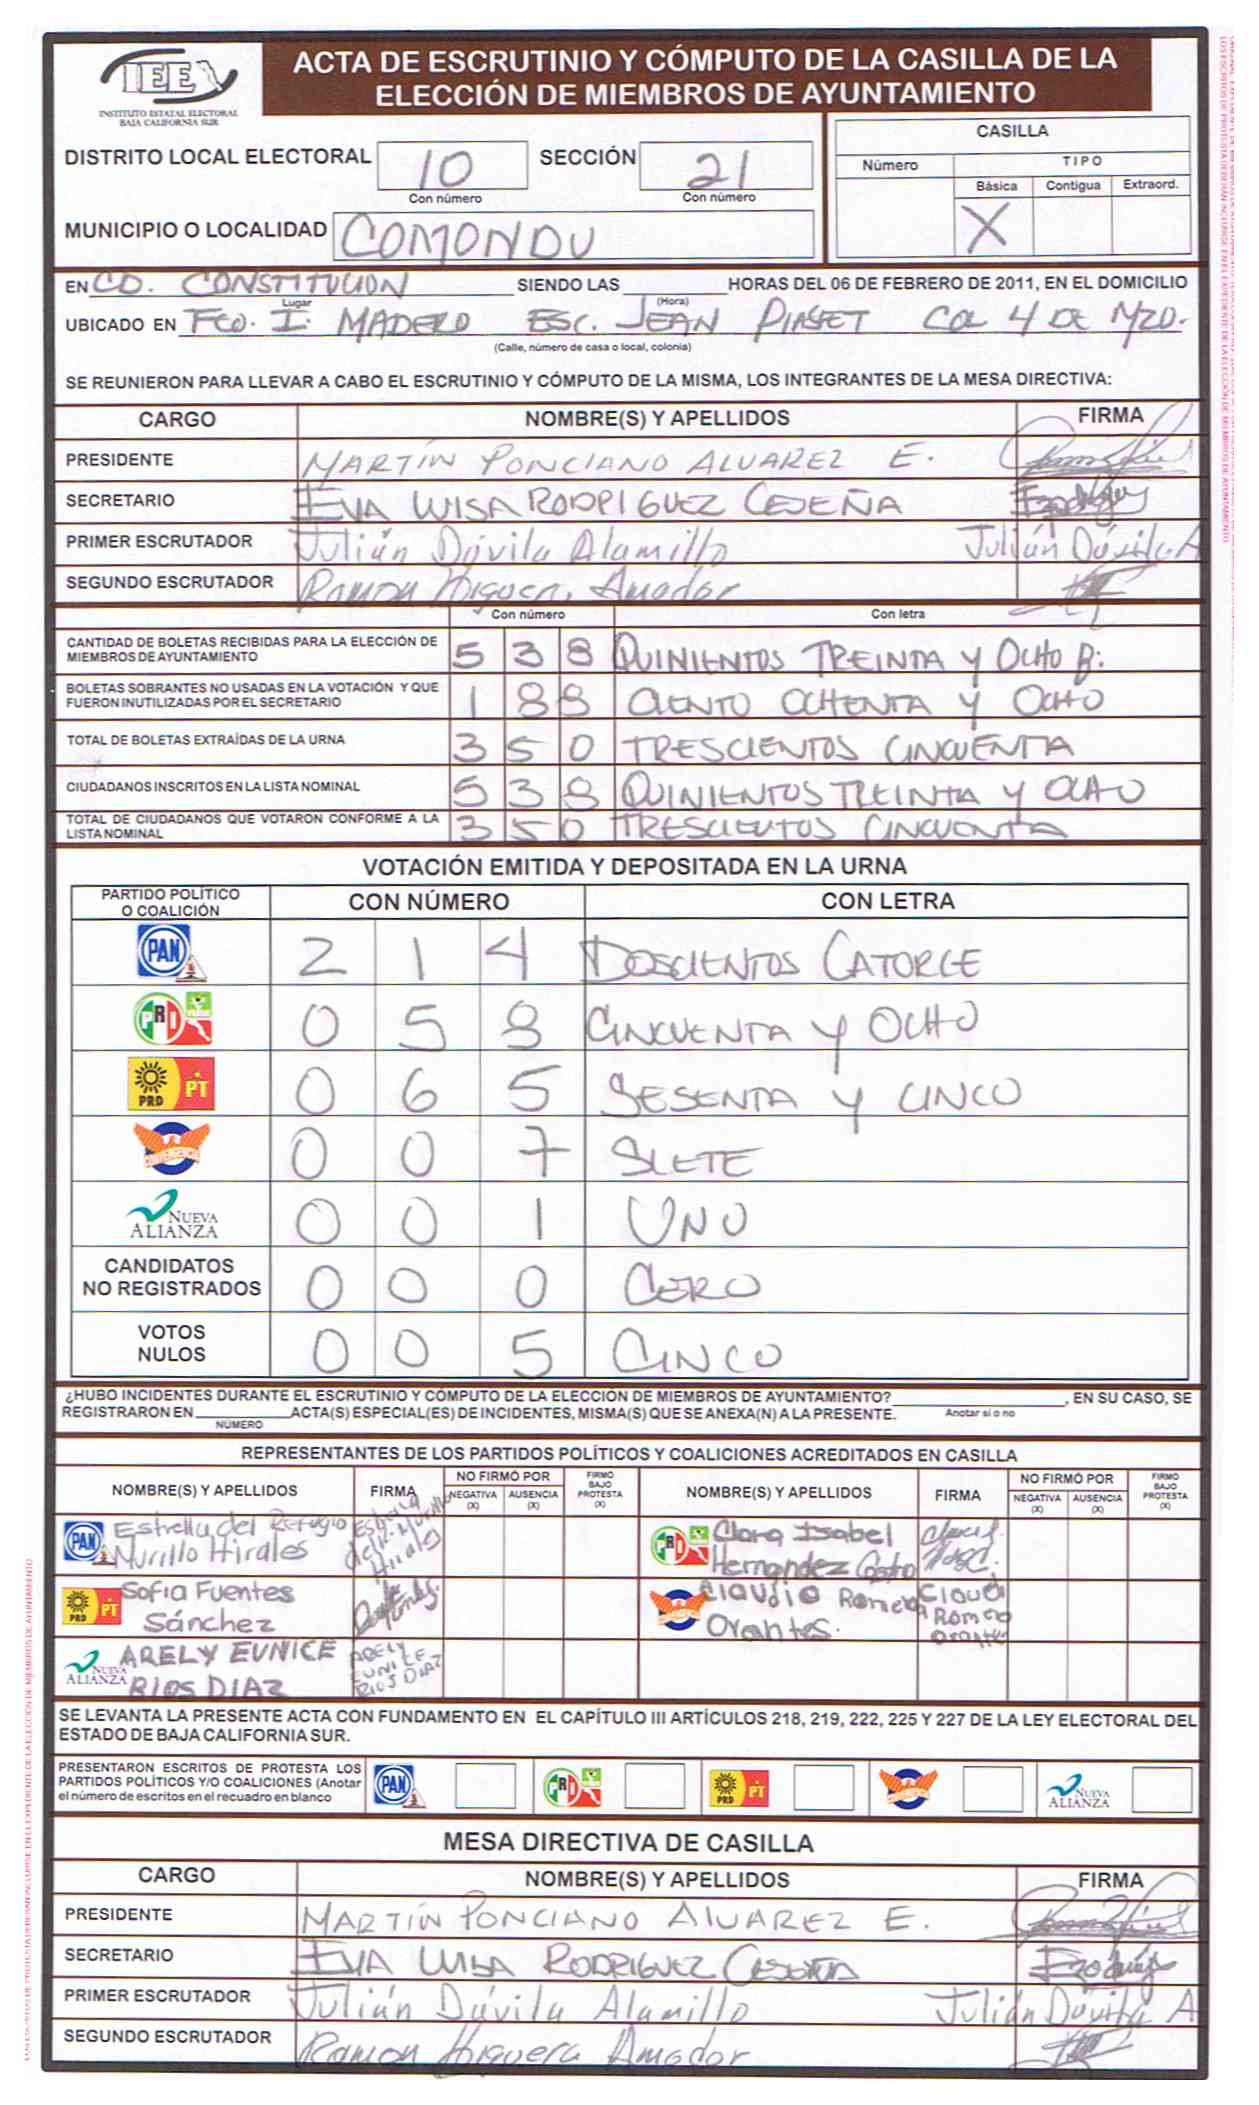 IEEX
INSTITUTO ESTATAL ELECTORAL
BAJA CALIFORNIA SUR
ACTA DE ESCRUTINIO Y CÓMPUTO DE LA CASILLA DE LA
ELECCIÓN DE MIEMBROS DE AYUNTAMIENTO
DISTRITO LOCAL ELECTORAL 10 SECCIÓN 21
Con número Con número
CASILLA
Número TIPO
Básica Contigua Extraord.
X
MUNICIPIO O LOCALIDAD COMONDU
EN CD. CONSTITUCION SIENDO LAS HORAS DEL 06 DE FEBRERO DE 2011, EN EL DOMICILIO
Lugar (Hora)
UBICADO EN FCO. I. MADERO ESC. JEAN PIASET COL 4 DE MZO.
(Calle, número de casa o local, colonia)
SE REUNIERON PARA LLEVAR A CABO EL ESCRUTINIO Y CÓMPUTO DE LA MISMA, LOS INTEGRANTES DE LA MESA DIRECTIVA:
CARGO NOMBRE(S) Y APELLIDOS FIRMA
PRESIDENTE MARTÍN PONCIANO ALVAREZ E.
SECRETARIO EVA LUISA RODRIGUEZ CEDEÑA
PRIMER ESCRUTADOR Julián Dávila Alamillo Julián Dávila A
SEGUNDO ESCRUTADOR Ramon Higuera Amador
Con número Con letra
CANTIDAD DE BOLETAS RECIBIDAS PARA LA ELECCIÓN DE
MIEMBROS DE AYUNTAMIENTO 5 3 8 QUINIENTOS TREINTA Y OCHO B.
BOLETAS SOBRANTES NO USADAS EN LA VOTACIÓN Y QUE
FUERON INUTILIZADAS POR EL SECRETARIO 1 8 8 CIENTO OCHENTA Y OCHO
TOTAL DE BOLETAS EXTRAÍDAS DE LA URNA 3 5 0 TRESCIENTOS CINCUENTA
CIUDADANOS INSCRITOS EN LA LISTA NOMINAL 5 3 8 QUINIENTOS TREINTA Y OCHO
TOTAL DE CIUDADANOS QUE VOTARON CONFORME A LA
LISTA NOMINAL 3 5 0 TRESCIENTOS CINCUENTA
VOTACIÓN EMITIDA Y DEPOSITADA EN LA URNA
PARTIDO POLÍTICO
O COALICIÓN CON NÚMERO CON LETRA
PAN 2 1 4 DOSCIENTOS CATORCE
PRI 0 5 8 CINCUENTA Y OCHO
PRD PT 0 6 5 SESENTA Y CINCO
CONVERGENCIA 0 0 7 SIETE
NUEVA
ALIANZA 0 0 1 UNO
CANDIDATOS
NO REGISTRADOS 0 0 0 CERO
VOTOS
NULOS 0 0 5 CINCO
¿HUBO INCIDENTES DURANTE EL ESCRUTINIO Y CÓMPUTO DE LA ELECCIÓN DE MIEMBROS DE AYUNTAMIENTO? , EN SU CASO, SE
REGISTRARON EN ACTA(S) ESPECIAL(ES) DE INCIDENTES, MISMA(S) QUE SE ANEXA(N) A LA PRESENTE. Anotar si o no
NÚMERO
REPRESENTANTES DE LOS PARTIDOS POLÍTICOS Y COALICIONES ACREDITADOS EN CASILLA
NOMBRE(S) Y APELLIDOS FIRMA NO FIRMÓ POR NEGATIVA (X) AUSENCIA (X) FIRMÓ BAJO PROTESTA (X) NOMBRE(S) Y APELLIDOS FIRMA NO FIRMÓ POR NEGATIVA (X) AUSENCIA (X) FIRMÓ BAJO PROTESTA (X)
PAN Estrella del Refugio
Murillo Hirales
PRI Clara Isabel
Hernandez Castro
PRD PT Sofia Fuentes
Sánchez
Claudio Romero
Orantes.
NUEVA
ALIANZA ARELY EUNICE
RIOS DIAZ
ARELY
EUNICE
RIOS DIAZ
SE LEVANTA LA PRESENTE ACTA CON FUNDAMENTO EN EL CAPÍTULO III ARTÍCULOS 218, 219, 222, 225 Y 227 DE LA LEY ELECTORAL DEL
ESTADO DE BAJA CALIFORNIA SUR.
PRESENTARON ESCRITOS DE PROTESTA LOS
PARTIDOS POLÍTICOS Y/O COALICIONES (Anotar
el número de escritos en el recuadro en blanco
PAN PRI PRD PT NUEVA
ALIANZA
MESA DIRECTIVA DE CASILLA
CARGO NOMBRE(S) Y APELLIDOS FIRMA
PRESIDENTE MARTÍN PONCIANO ALVAREZ E.
SECRETARIO EVA LUISA RODRIGUEZ CEDEÑA
PRIMER ESCRUTADOR Julián Dávila Alamillo Julián Dávila A
SEGUNDO ESCRUTADOR Ramon Higuera Amador